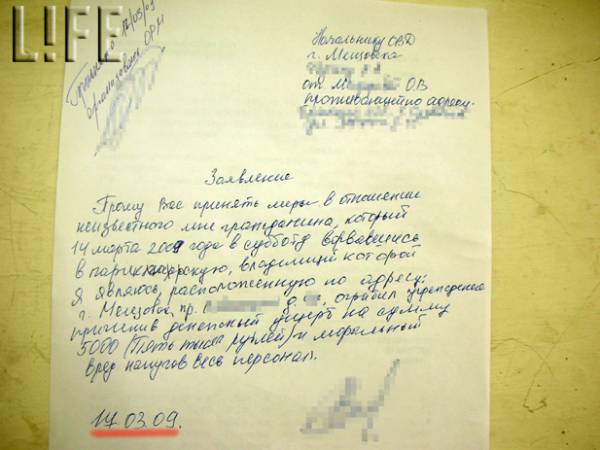 L!FE
17/03/09
Начальнику ОВД
г. Мещовска
от М ОВ
адресу:
Заявление
Прошу Вас принять меры в отношении
неизвестного мне гражданина, который
14 марта 2009 года в субботу ворвавшись
в парикмахерскую, владелицей которой
Я являюсь, расположенную по адресу:
г. Мещовск, пр. д. , ограбил учреждение
причинив денежный ущерб на сумму
5000 (Пять тысяч рублей) и моральный
вред напугов весь персонал.
17.03.09.